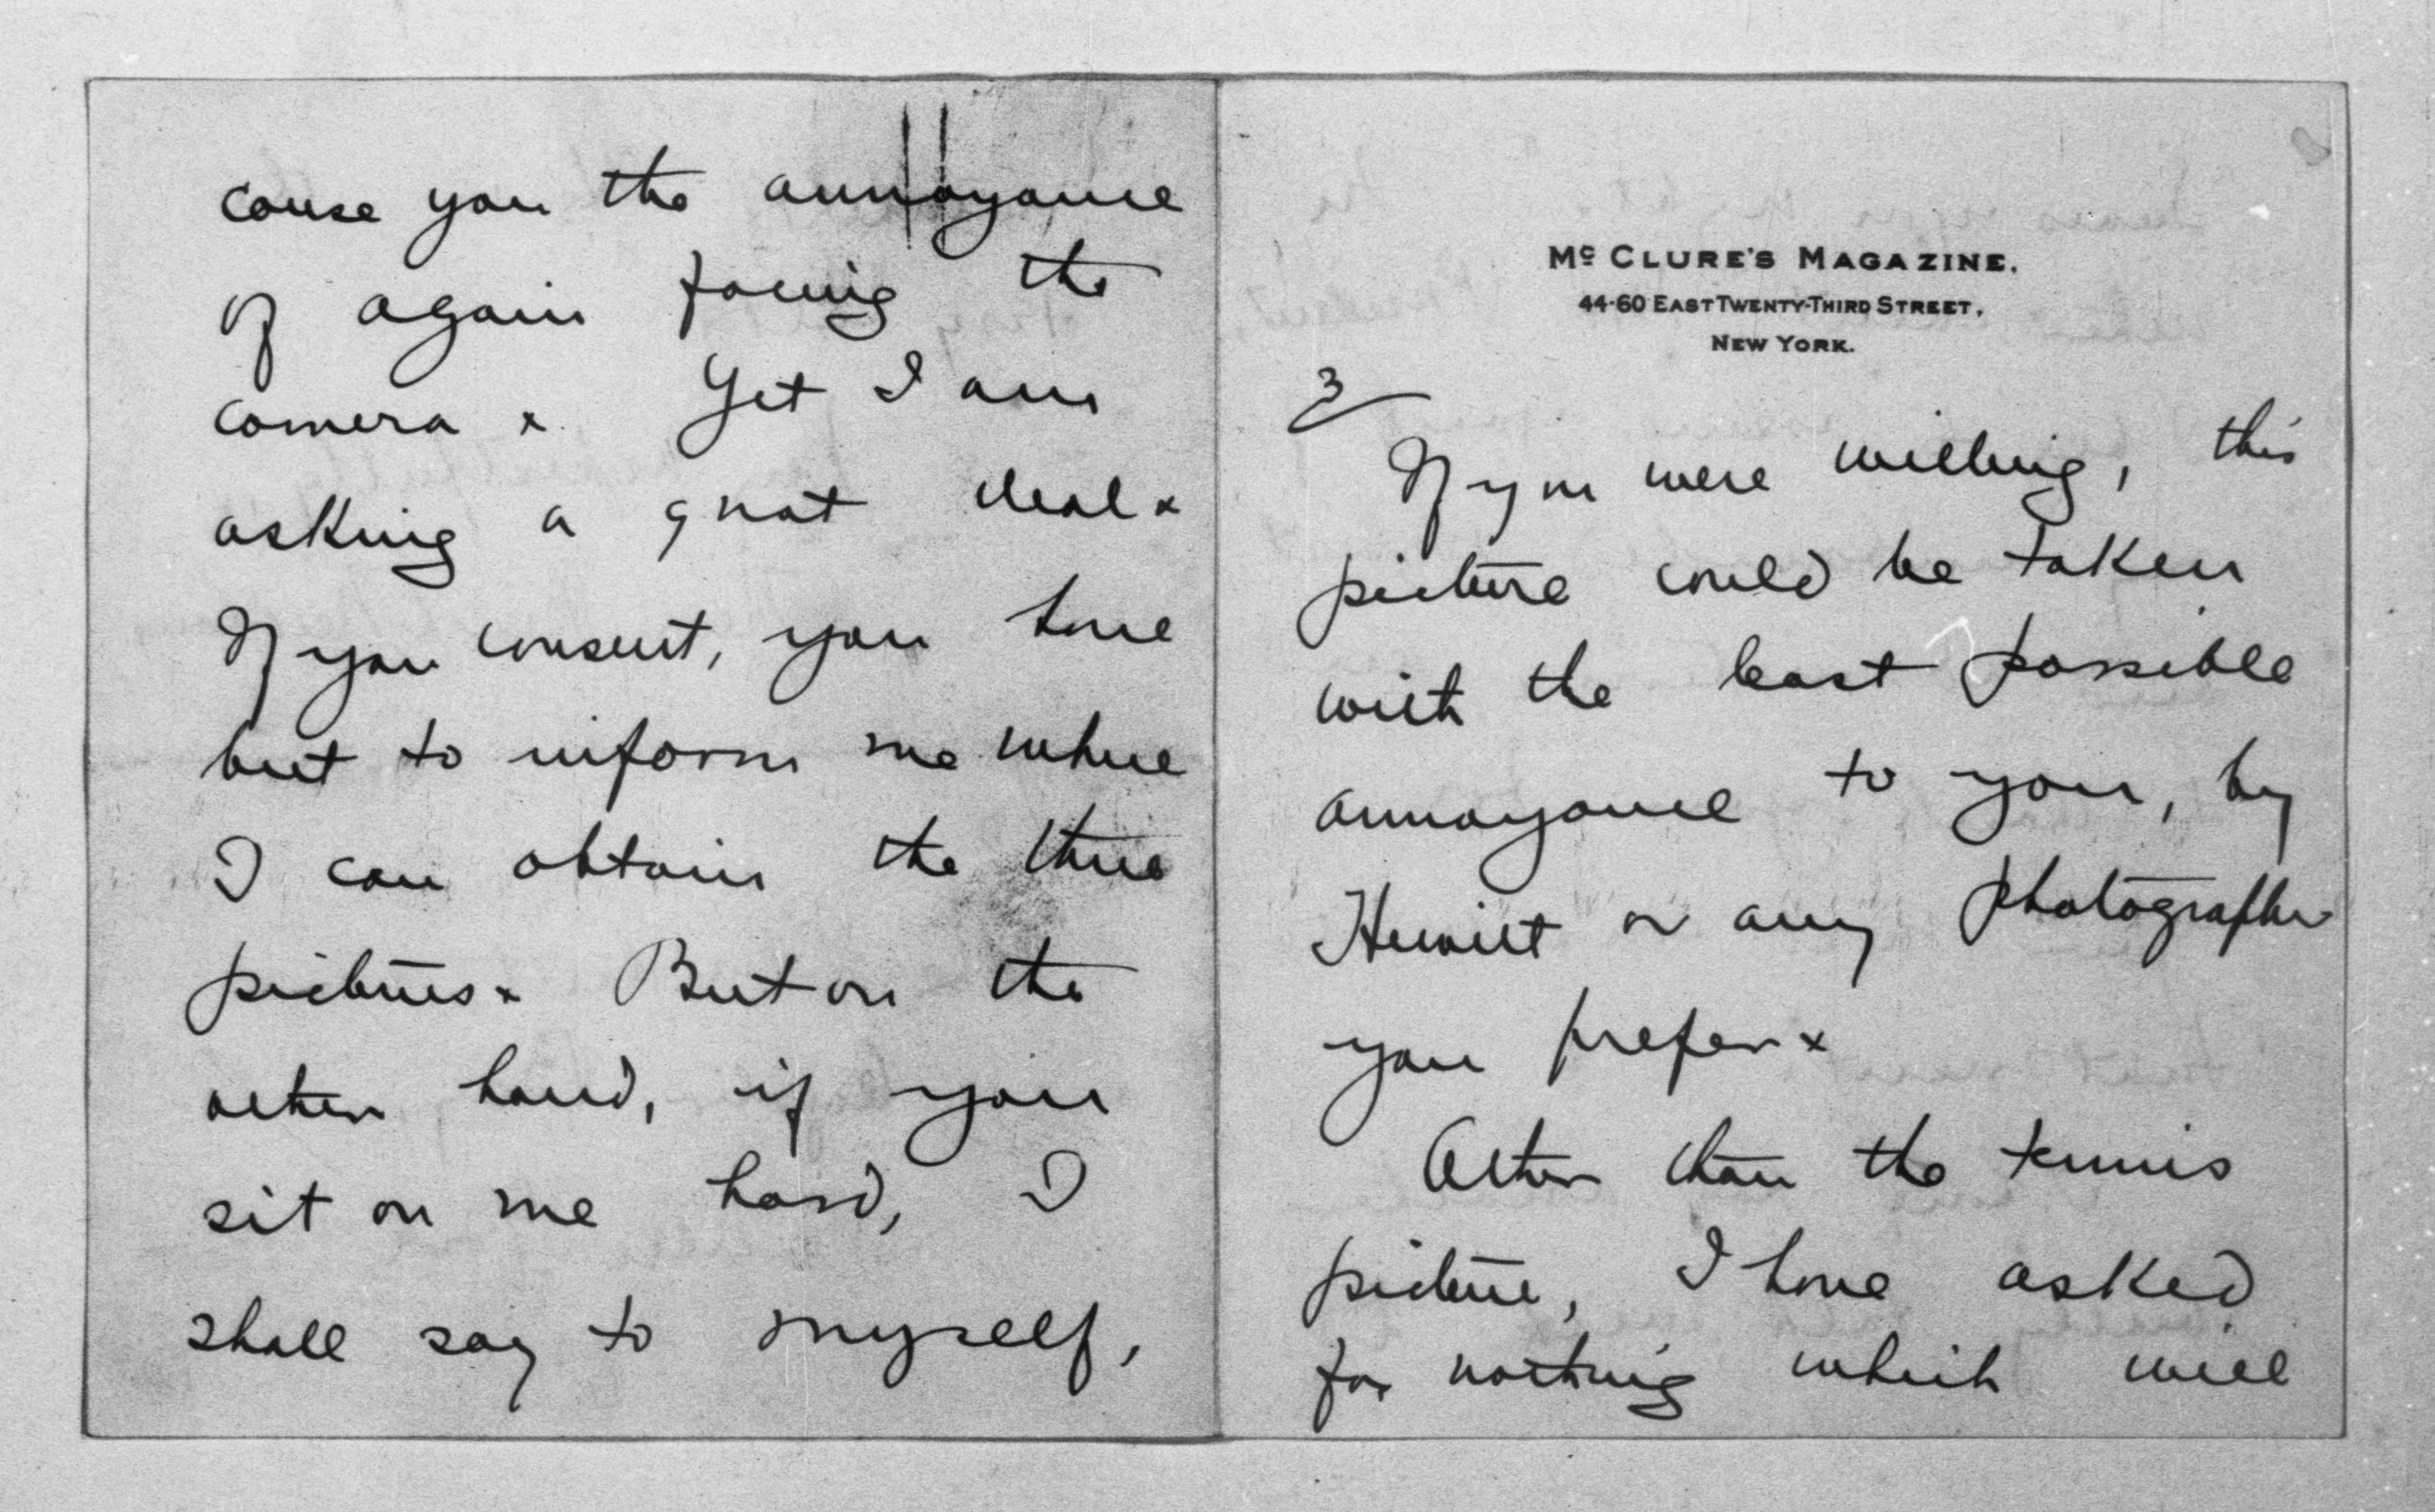 McCLURE'S MAGAZINE.
44-60 EAST TWENTY-THIRD STREET.
NEW YORK.
3
If you were willing, this
picture could be taken
with the least possible
annoyance to you, by
Hewitt or any photographer
you prefer x
Other than the tennis
picture, I have asked
for nothing which will
cause you the annoyance
of again facing the
camera x Yet I am
asking a great deal x
If you consent, you have
but to inform me where
I can obtain the three
pictures x But on the
other hand, if you
sit on me hard, I
shall say to myself,